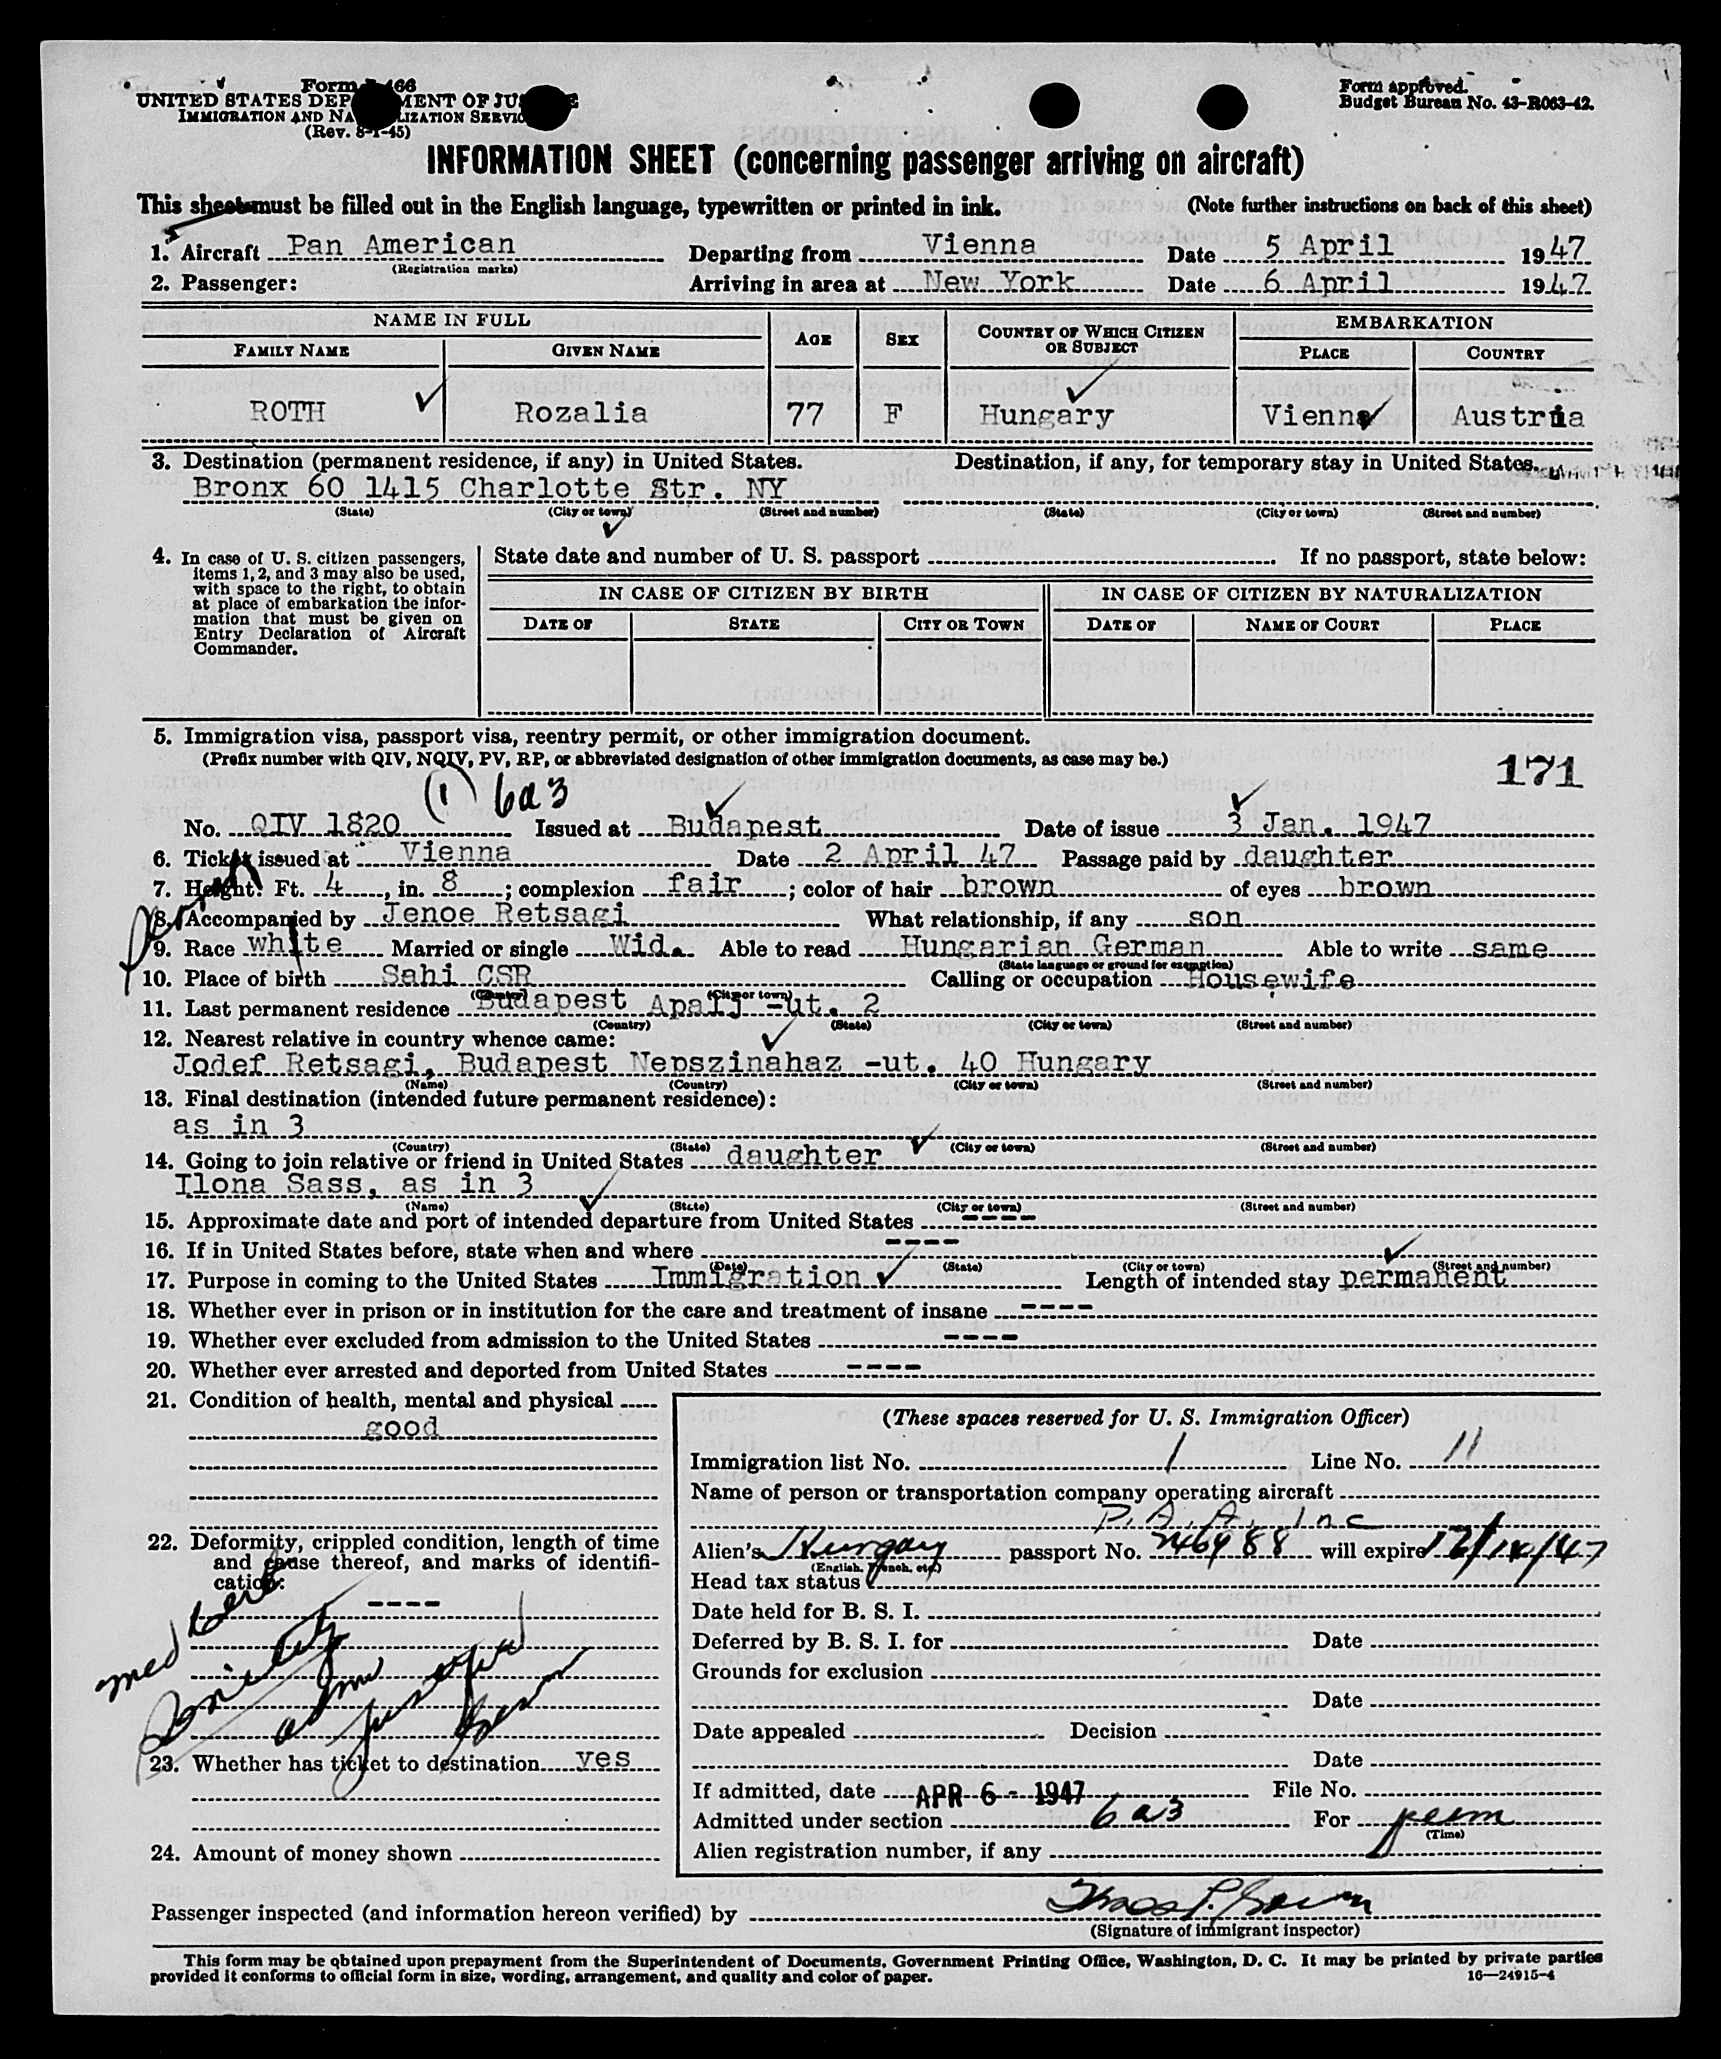 Form I-466
UNITED STATES DEPARTMENT OF JUSTICE
IMMIGRATION AND NATURALIZATION SERVICE
(Rev. 8-1-45)
Form approved.
Budget Bureau No. 43-R063-42.
INFORMATION SHEET (concerning passenger arriving on aircraft)
This sheet must be filled out in the English language, typewritten or printed in ink. (Note further instructions on back of this sheet)
1. Aircraft Pan American Departing from Vienna Date 5 April 1947
(Registration marks)
2. Passenger: Arriving in area at New York Date 6 April 1947
NAME IN FULL AGE SEX COUNTRY OF WHICH CITIZEN OR SUBJECT EMBARKATION
FAMILY NAME GIVEN NAME PLACE COUNTRY
ROTH Rozalia 77 F Hungary Vienna Austria
3. Destination (permanent residence, if any) in United States. Destination, if any, for temporary stay in United States.
Bronx 60 1415 Charlotte Str. NY
(State) (City or town) (Street and number) (State) (City or town) (Street and number)
4. In case of U. S. citizen passengers,
items 1, 2, and 3 may also be used,
with space to the right, to obtain
at place of embarkation the infor-
mation that must be given on
Entry Declaration of Aircraft
Commander.
State date and number of U. S. passport If no passport, state below:
IN CASE OF CITIZEN BY BIRTH IN CASE OF CITIZEN BY NATURALIZATION
DATE OF STATE CITY OR TOWN DATE OF NAME OF COURT PLACE
5. Immigration visa, passport visa, reentry permit, or other immigration document.
(Prefix number with QIV, NQIV, PV, RP, or abbreviated designation of other immigration documents, as case may be.)
171
(1) 6a3
No. QIV 1820 Issued at Budapest Date of issue 3 Jan. 1947
6. Ticket issued at Vienna Date 2 April 47 Passage paid by daughter
7. Height: Ft. 4, in. 8; complexion fair; color of hair brown of eyes brown
8. Accompanied by Jenoe Retsagi What relationship, if any son
9. Race white Married or single Wid. Able to read Hungarian German Able to write same
(State language or ground for exemption)
10. Place of birth Sahi CSR Calling or occupation Housewife
(Country) (City or town)
11. Last permanent residence Budapest Apafj -ut. 2
(Country) (State) (City or town) (Street and number)
12. Nearest relative in country whence came:
Jodef Retsagi, Budapest Nepszinahaz -ut. 40 Hungary
(Name) (Country) (City or town) (Street and number)
13. Final destination (intended future permanent residence):
as in 3
(Country) (State) (City or town) (Street and number)
14. Going to join relative or friend in United States daughter
Ilona Sass, as in 3
(Name) (State) (City or town) (Street and number)
15. Approximate date and port of intended departure from United States ----
16. If in United States before, state when and where ----
(Date) (State) (City or town) (Street and number)
17. Purpose in coming to the United States Immigration Length of intended stay permanent
18. Whether ever in prison or in institution for the care and treatment of insane ----
19. Whether ever excluded from admission to the United States ----
20. Whether ever arrested and deported from United States ----
21. Condition of health, mental and physical
good
22. Deformity, crippled condition, length of time
and cause thereof, and marks of identifi-
cation:
----
med cert
Senility
adm
23. Whether has ticket to destination yes
24. Amount of money shown
(These spaces reserved for U. S. Immigration Officer)
Immigration list No. 1 Line No. 11
Name of person or transportation company operating aircraft
P. A. A. Inc
Alien's Hungary passport No. 246988 will expire 12/14/47
(English, French, etc.)
Head tax status
Date held for B. S. I.
Deferred by B. S. I. for Date
Grounds for exclusion
Date
Date appealed Decision
Date
If admitted, date APR 6 - 1947 File No.
Admitted under section 6a3 For perm
(Time)
Alien registration number, if any
Passenger inspected (and information hereon verified) by
(Signature of immigrant inspector)
This form may be obtained upon prepayment from the Superintendent of Documents, Government Printing Office, Washington, D. C. It may be printed by private parties
provided it conforms to official form in size, wording, arrangement, and quality and color of paper.
16—24915-4